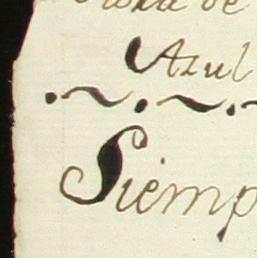 de
Azul
Siemp